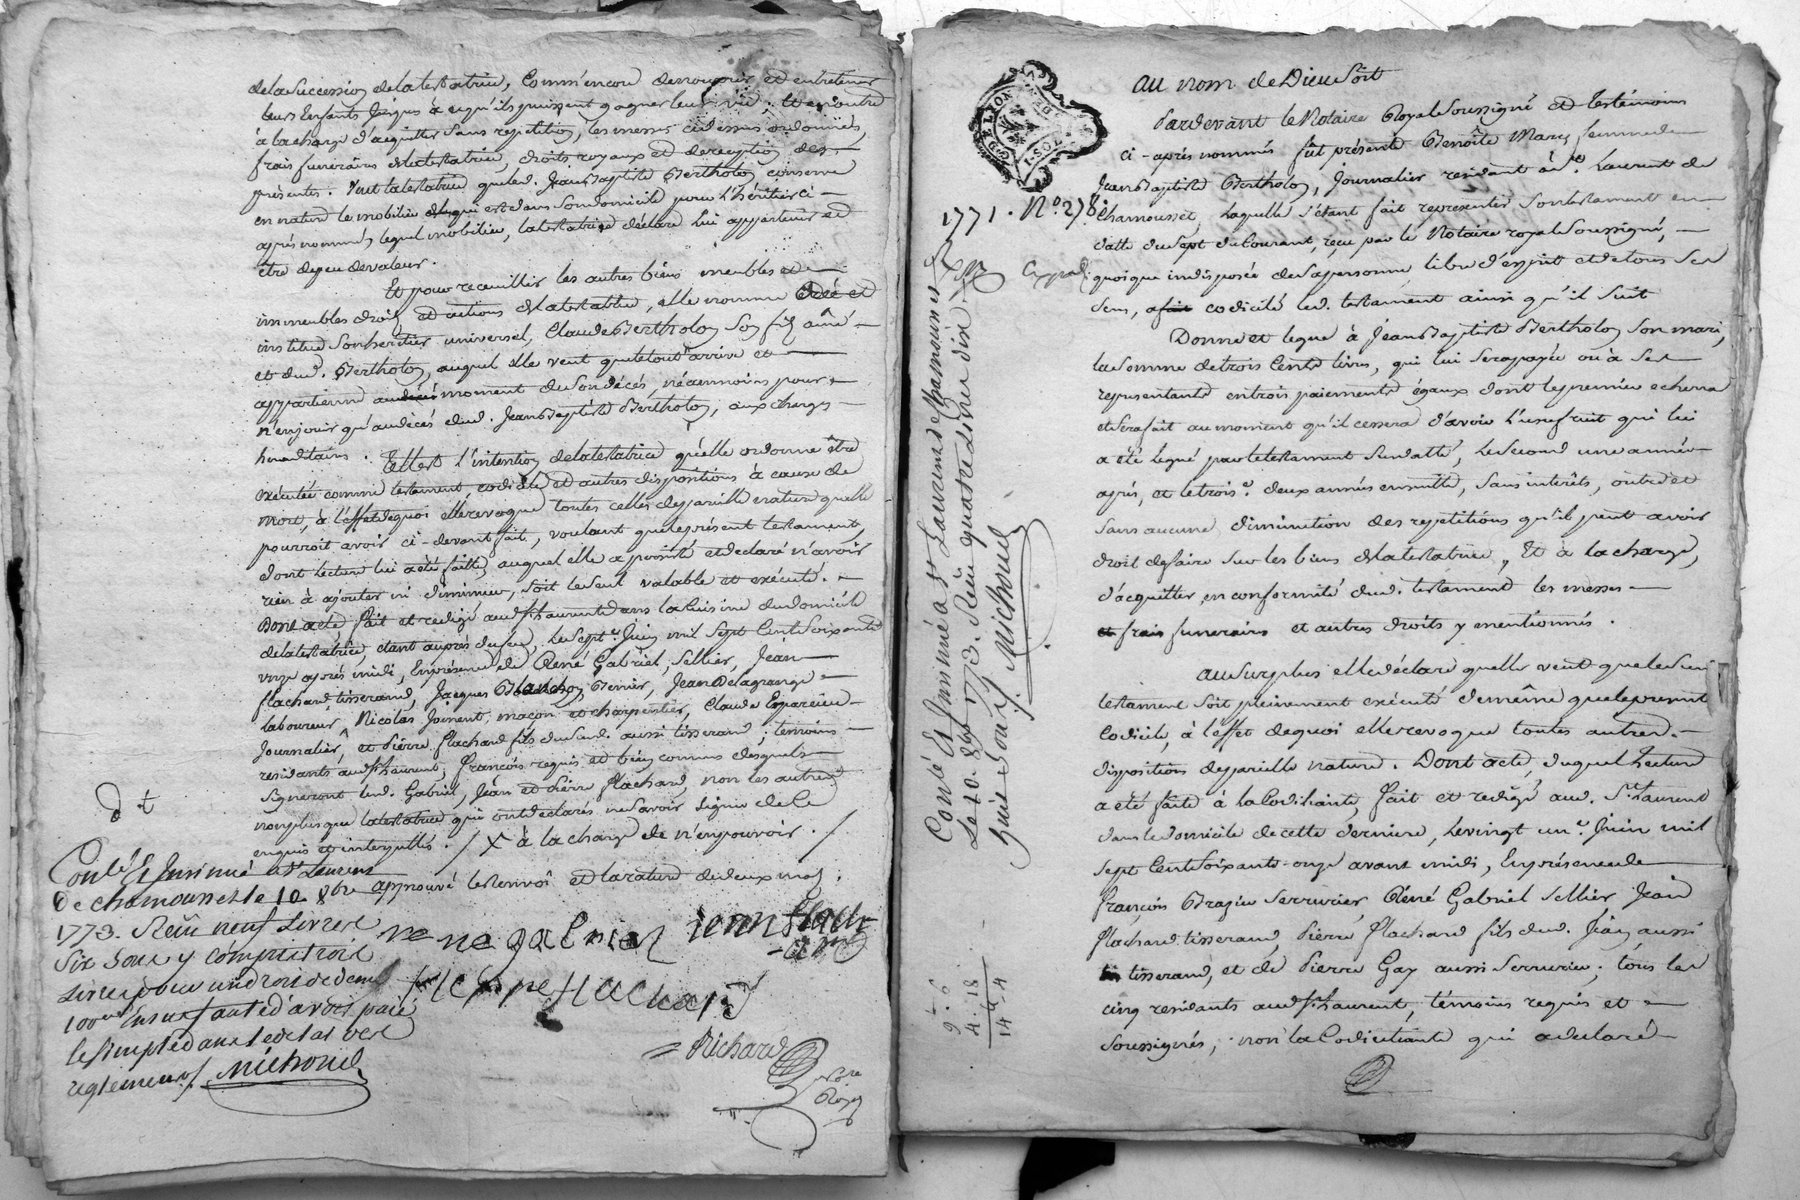 de la succession de la testatrice, comm'encore de nourrir et entretenir
leurs Enfants jusques à ce qu'ils puissent gagner leur vie; et en outre
à la charge d'acquitter sans repetition, les messes cidessus ordonnées,
frais funeraires de la testatrice, droits royaux et de reception des
présentes. Veut la testatrice que led. Jean Baptiste Bertholon conserve
en nature le mobilier qui est dans son domicile pour l'héritier ci
après nommé, lequel mobilier, la testatrice déclare lui appartenir et
être de peu de valeur.
Et pour receuillir les autres biens meubles et
immeubles droits et actions de la testatrice, elle nomme et
institue son heritier universel, Claude Bertholon son fils aîné
et dud. Bertholon, auquel elle veut que le tout arrive et
appartienne au moment de son décès, néanmoins pour
n'en jouir qu'au décès dud. Jean Baptiste Bertholon, aux charges
hereditaires. Telle est l'intention de la testatrice qu'elle ordonne être
exécutée comme testament, codicile et autres dispositions à cause de
mort, à l'effet de quoi elle revoque toutes celles de pareille nature qu'elle
pourroit avoir ci-devant fait, voulant que le présent testament,
dont lecture lui a été faite, auquel elle a persisté et declaré n'avoir
rien à ajouter ni diminuer, soit le seul valable et exécuté.
Dont acte fait et redigé aud. St Laurent dans la cuisine du domicile
de la testatrice, étant auprès du feu, le sept Juin mil sept cent soixante
onze après midi, En présence de René Gabriel, Sellier, Jean
flachard, tisserand, Jacques Blanchon Benier, Jean Delagrange
laboureur, Nicolas Joinent, maçon et charpentier, Claude Esparcieu
Journalier, et Pierre flachard fils dud. aussi tisserand; temoins
residants aud. St Laurent, françois requis et bien connus desquels
signeront led. Gabriel, Jean et Pierre flachard, non les autres
non plus que la testatrice qui ont declarés ne savoir signer de ce
enquis et interpellés. / X à la charge de n'en pouvoir. /
approuvé le renvoi et la rature de deux mots.
Conlé Et Insinué a St Laurens
De chamousset le 10 8bre
1773. Reçu neuf Livres
Six Sous y compris trois
Livres pour un droit de demi
100me
regiemeurs/. Michoud
rene gabriel jean flach
-ard
pierre flachard
Richard
Notre
Royal
GD. DE LYON
1. SOL
1771. No. 278
Conlé Et Insinué a St Laurens de Chamousset
Le 10. 8bre 1773. Reçu quatre Livres dix
huit Sous/. Michoud
9 : 6
4 : 18
14 - 4
au nom de Dieu Soit
Pardevant le Notaire Royal Soussigné et Temoins
ci-après nommés fût présente Benoîte Mary femme de
Jean Baptiste Bertholon, Journalier residant à St. Laurent de
Chamousset, laquelle s'étant fait representer son testament en
datte du sept du Courant, reçu par le Notaire royal Soussigné,
quoique indisposée de sa personne, libre d'esprit et de tous ses
sens, a codicilé led. testament ainsi qu'il suit
Donne et legue à Jean Baptiste Bertholon son mari,
la somme de trois Cents livres, qui lui sera payée ou à ses
representants en trois paiements égaux dont le premier echerra
et sera fait au moment qu'il cessera d'avoir l'usufruit qui lui
a été legué par le testament susdatté, le second une année
après, et le trois.e deux années ensuitte, Sans interêts, outre et
Sans aucune diminution des repetitions qu'il peut avoir
droit de faire sur les biens de la testatrice, Et à la charge,
d'acquitter en conformité dud. testament les messes
et frais funeraires et autres droits y mentionnés.
Au surplus elle déclare qu'elle veut que le Sus
testament soit pleinement exécuté de même que le present
Codicile, à l'effet de quoi elle revoque toutes autres
dispositions de pareille nature. Dont acte, duquel Lecture
a été faite à la Codicilante, fait et redigé aud. St. Laurent
dans le domicile de cette derniere, Le vingt un.e Juin mil
sept Cent Soixante-onze avant midi, En présence de
françois Brazier Serrurier, Réné Gabriel Sellier Jean
flachard tisserand, Pierre flachard fils dud. Jean aussi
tisserand, et de Pierre Gay aussi Serrurier; tous les
cinq residants aud. St Laurent, témoins requis et
Soussignés, non la Codicilante qui a declaré